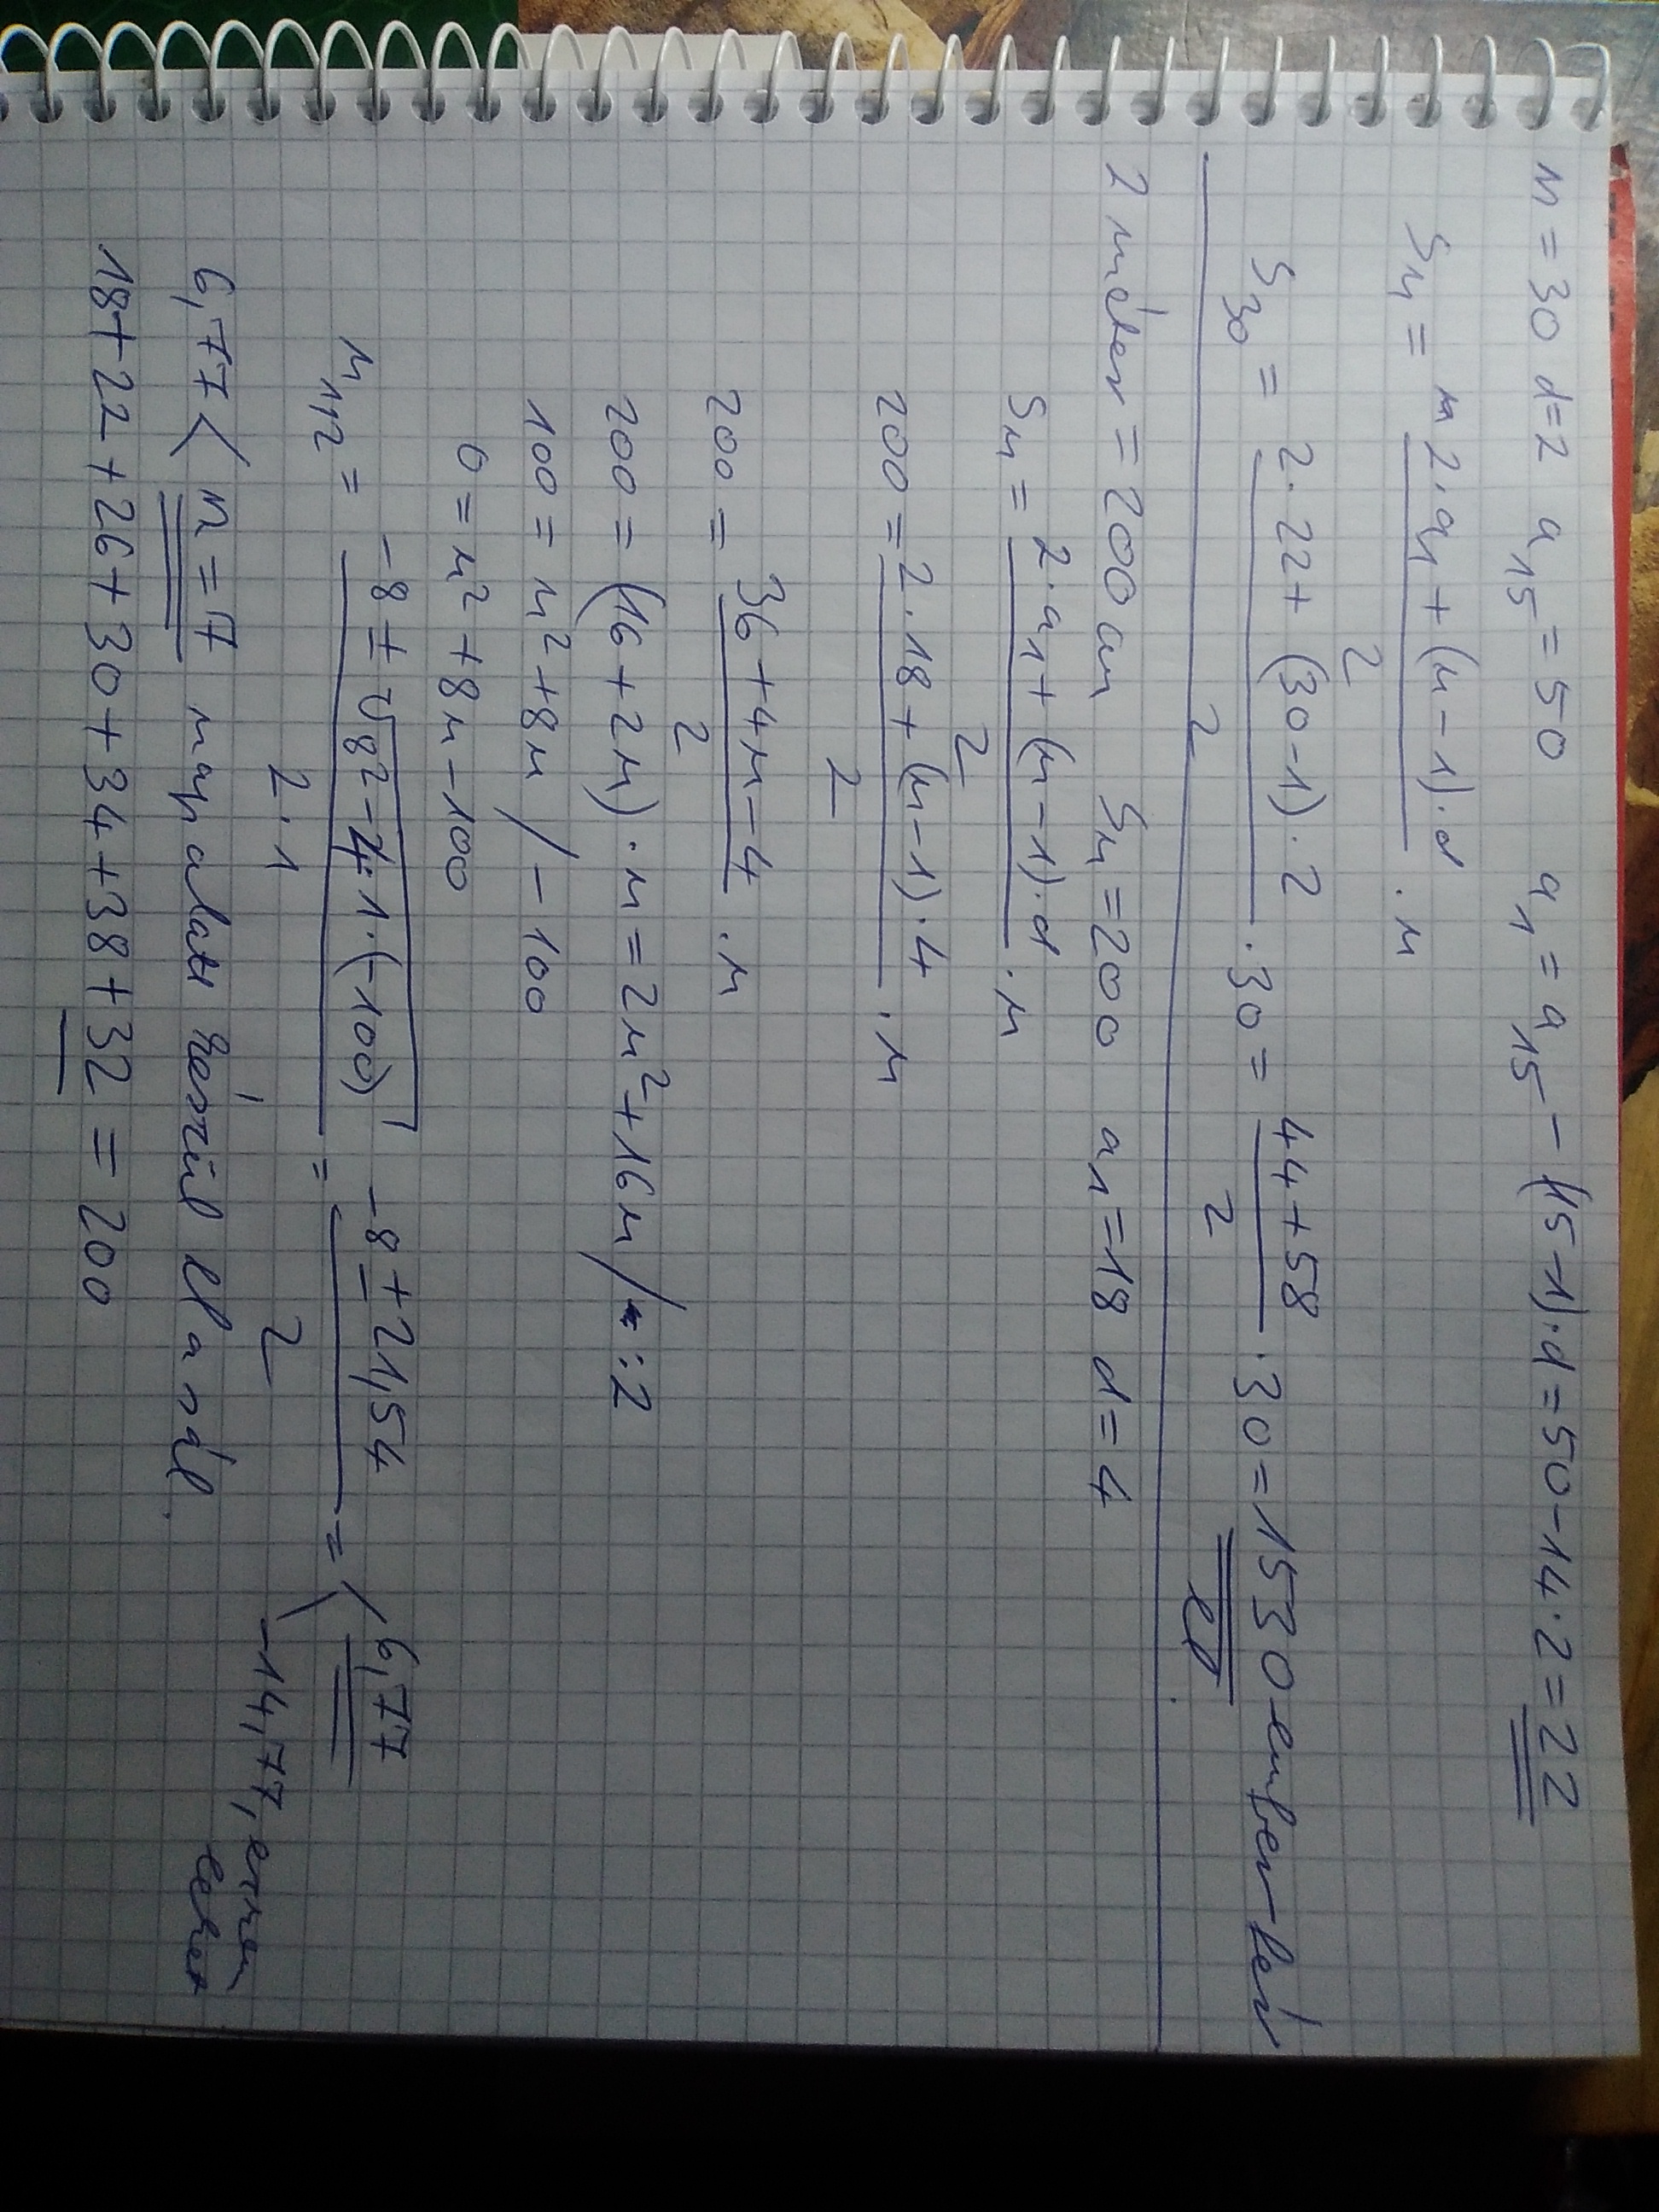 n = 30 d=2 a₁₅ = 50 a₁ = a₁₅ - (15-1)·d = 50-14·2 = 22
Sₙ = 2·a₁ + (n-1)·d / 2 · n
S₃₀ = 2·22 + (30-1)·2 / 2 · 30 = 44+58 / 2 · 30 = 1530 ember-bér
2 méter = 200 cm Sₙ = 200 a₁ = 18 d = 4
Sₙ = 2·a₁ + (n-1)·d / 2 · n
200 = 2·18 + (n-1)·4 / 2 · n
200 = 36 + 4n - 4 / 2 · n
200 = (16 + 2n)·n = 2n² + 16n / :2
100 = n² + 8n / -100
0 = n² + 8n - 100
n₁,₂ = -8 ± √8² - 4·1·(-100) / 2·1 = -8 ± 21,54 / 2 = 6,77
-14,77,
6,77 < n = 7 nap alatt készül el a sál.
18 + 22 + 26 + 30 + 34 + 38 + 32 = 200